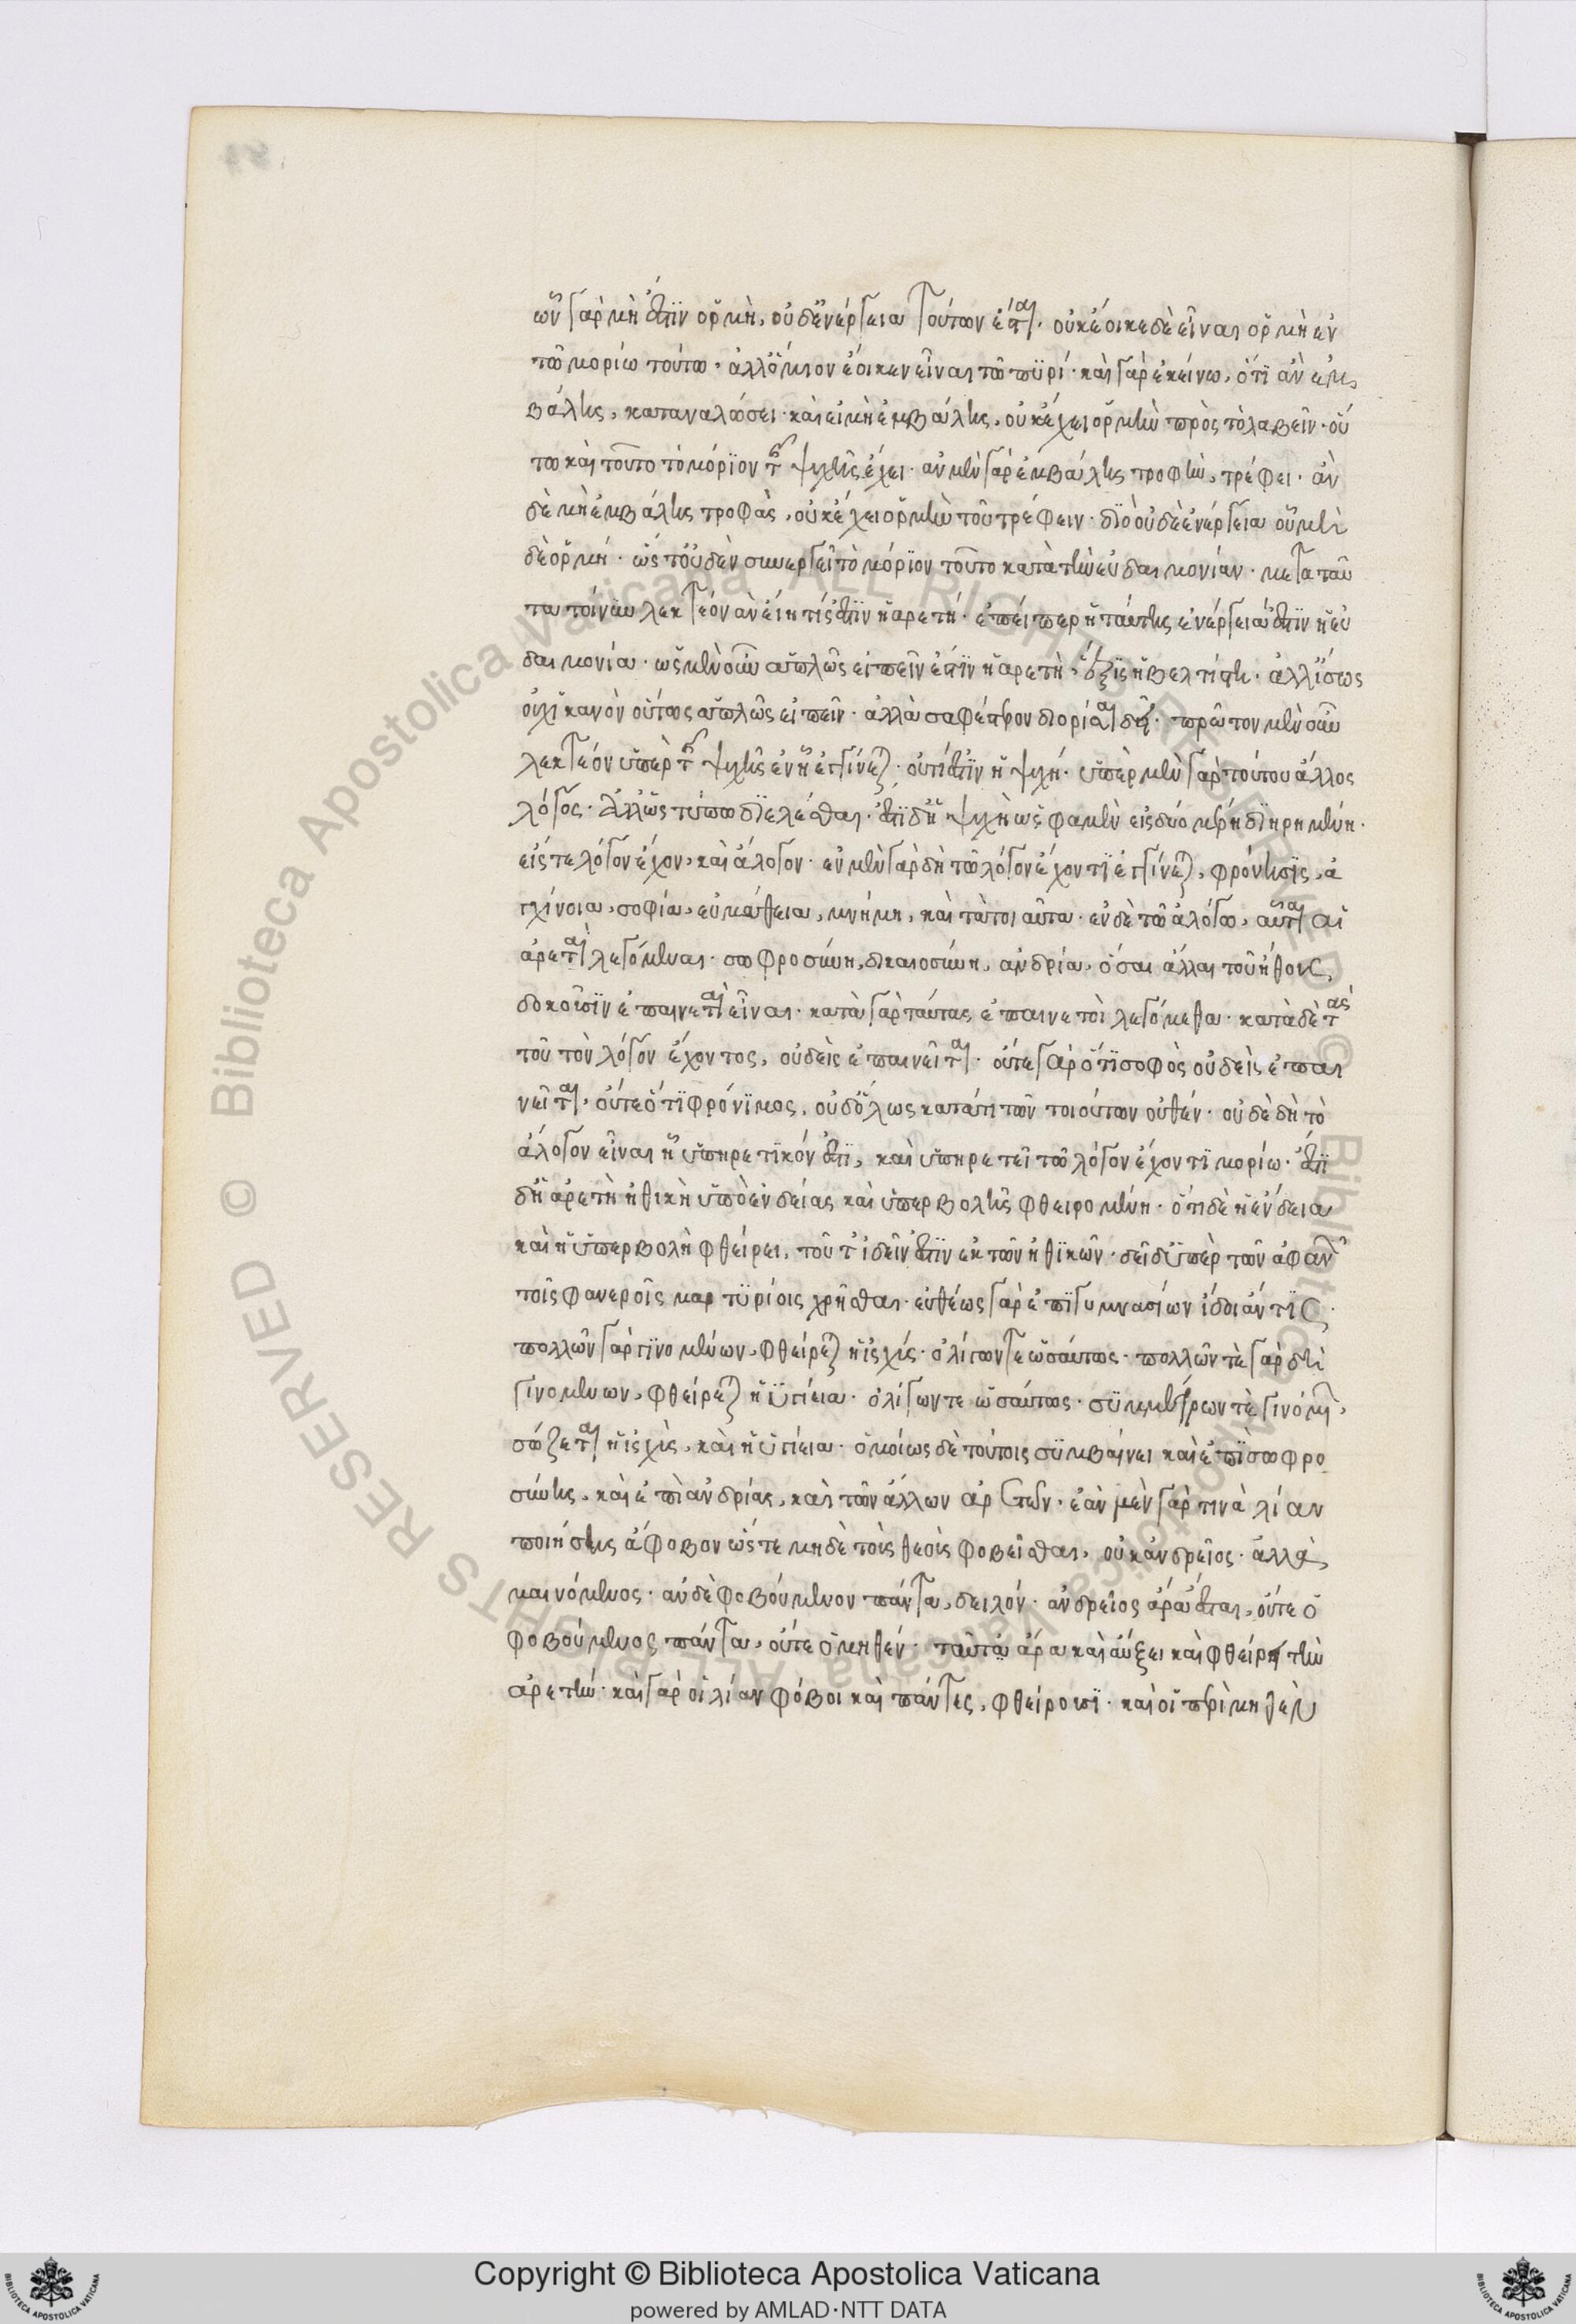 ὧν γὰρ μὴ ἔστιν ὁρμὴ, οὐδ' ἐνέργεια τούτων ἔσται. οὐκ ἔοικε δὲ εἶναι ὁρμὴ ἐν
τῶ μορίω τούτω. ἀλλ' ὅμοιον ἔοικεν εἶναι τῶ πυρί. καὶ γὰρ ἐκείνω, ὅτι ἂν ἐμ
βάλης, καταναλώσει. καὶ εἰ μὴ ἐμβάλης, οὐκ ἔχει ὁρμὴν πρὸς τὸ λαβεῖν. οὕ
τω καὶ τοῦτο τὸ μόριον τῆς ψυχῆς ἔχει. ἂν μὲν γὰρ ἐμβάλης τροφὴν, τρέφει. ἂν
δὲ μὴ ἐμβάλης τροφὰς, οὐκ ἔχει ὁρμὴν τοῦ τρέφειν. διὸ οὐδὲ ἐνέργεια οὗ μὴ
δὲ ὁρμή. ὥστ' οὐδὲν συνεργεῖ τὸ μόριον τοῦτο κατὰ τὴν εὐδαιμονίαν. μετὰ ταῦ
τα τοίνυν λεκτέον ἂν εἴη τίς ἐστιν ἡ ἀρετή. ἐπείπερ ἡ ταύτης ἐνέργειά ἐστιν ἡ εὐ
δαιμονία. ὡς μὲν οὖν ἁπλῶς εἰπεῖν ἐστιν ἡ ἀρετὴ, ἕξις ἡ βελτίστη. ἀλλ' ἴσως
οὐχ ἱκανὸν οὕτως ἁπλῶς εἰπεῖν. ἀλλὰ σαφέστερον διορίσαι δεῖ. πρῶτον μὲν οὖν
λεκτέον ὑπὲρ τῆς ψυχῆς ἐν ἧ ἐγγίνεται. οὐ τί ἐστιν ἡ ψυχή. ὑπὲρ μὲν γὰρ τούτου ἄλλος
λόγος. ἀλλ' ὡς τύπω διελέσθαι. ἔστι δ' ἡ ψυχὴ ὡς φαμὲν εἰς δύο μέρη διηρημένη.
εἴς τε λόγον ἔχον, καὶ ἄλογον. ἐν μὲν γὰρ δὴ τῶ λόγον ἔχοντι ἐγγίνεται, φρόνησις, ἀ
γχίνοια, σοφία, εὐμάθεια, μνήμη, καὶ τὰ τοιαῦτα. ἐν δὲ τῶ ἀλόγω, αὗται αἱ
ἀρεταὶ λεγόμεναι. σωφροσύνη, δικαιοσύνη, ἀνδρία, ὅσαι ἄλλαι τοῦ ἤθους
δοκοῦσιν ἐπαινεταὶ εἶναι. κατὰ γὰρ ταύτας ἐπαινετοὶ λεγόμεθα. κατὰ δὲ τὰς
τοῦ τὸν λόγον ἔχοντος, οὐδεὶς ἐπαινεῖται. οὔτε γὰρ ὅτι σοφὸς οὐδεὶς ἐπαι
νεῖται, οὔτε ὅτι φρόνιμος, οὐδ' ὅλως κατά τι τῶν τοιούτων οὐθέν. οὐδὲ δὴ τὸ
ἄλογον εἶναι ἧ ὑπηρετικόν ἐστι, καὶ ὑπηρετεῖ τῶ λόγον ἔχοντι μορίω. ἔστι
δ' ἡ ἀρετὴ ἠθικὴ ὑπὸ ἐνδείας καὶ ὑπερβολῆς φθειρομένη. ὅτι δὲ ἡ ἔνδεια
καὶ ἡ ὑπερβολὴ φθείρει, τοῦτ' ἰδεῖν ἔστιν ἐκ τῶν ἠθικῶν. δεῖ δ' ὑπὲρ τῶν ἀφανῶν
τοῖς φανεροῖς μαρτυρίοις χρῆσθαι. εὐθέως γὰρ ἐπὶ γυμνασίων ἴδοι ἄν τις.
πολλῶν γὰρ γινομένων, φθείρεται ἡ ἰσχύς. ὀλίγων τε ὡσαύτως. πολλῶν τε γὰρ δὴ
γινομένων, φθείρεται ἡ ὑγίεια. ὀλίγων τε ὡσαύτως. συμμέτρων τὲ γινομένων,
σώζεται ἡ ἰσχὺς, καὶ ἡ ὑγίεια. ὁμοίως δὲ τούτοις συμβαίνει καὶ ἐπὶ σωφρο
σύνης, καὶ ἐπὶ ἀνδρίας, καὶ τῶν ἄλλων ἀρετῶν. ἐὰν μὲν γάρ τινα λίαν
ποιήσης ἄφοβον ὥστε μηδὲ τοὺς θεοὺς φοβεῖσθαι, οὐκ ἀνδρεῖος. ἀλλὰ
μαινόμενος. ἂν δὲ φοβούμενον πάντα, δειλόν. ἀνδρεῖος ἄρα ἔσται, οὔτε ὁ
φοβούμενος πάντα, οὔτε ὁ μηθέν. ταῦτα ἄρα καὶ αὔξει καὶ φθείρει τὴν
ἀρετήν. καὶ γὰρ οἱ λίαν φόβοι καὶ πάντες, φθείρουσι. καὶ οἱ περὶ μηθὲν